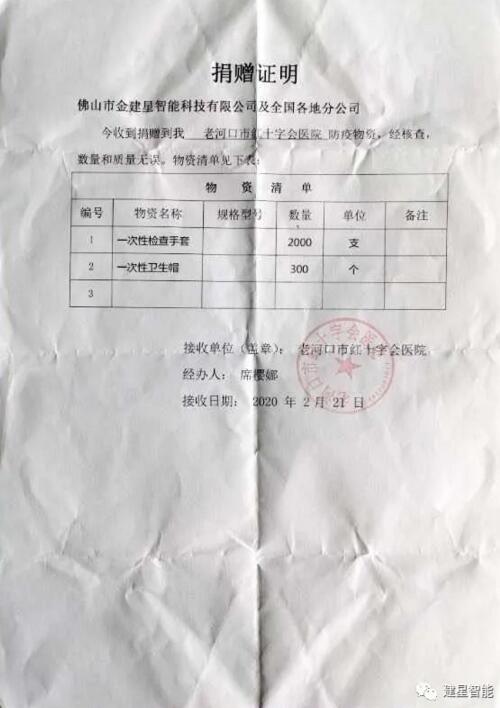 捐赠证明
佛山市金建星智能科技有限公司及全国各地分公司
今收到捐赠到我 老河口市红十字会医院 防疫物资,经核查,
数量和质量无误。物资清单见下表:
物 资 清 单
编号 物资名称 规格型号 数量 单位 备注
1 一次性检查手套 2000 支
2 一次性卫生帽 300 个
3
接收单位(盖章): 老河口市红十字会医院
经办人: 席樱娜
接收日期: 2020 年 2 月 21 日
老河口市红十字会医院
建星智能